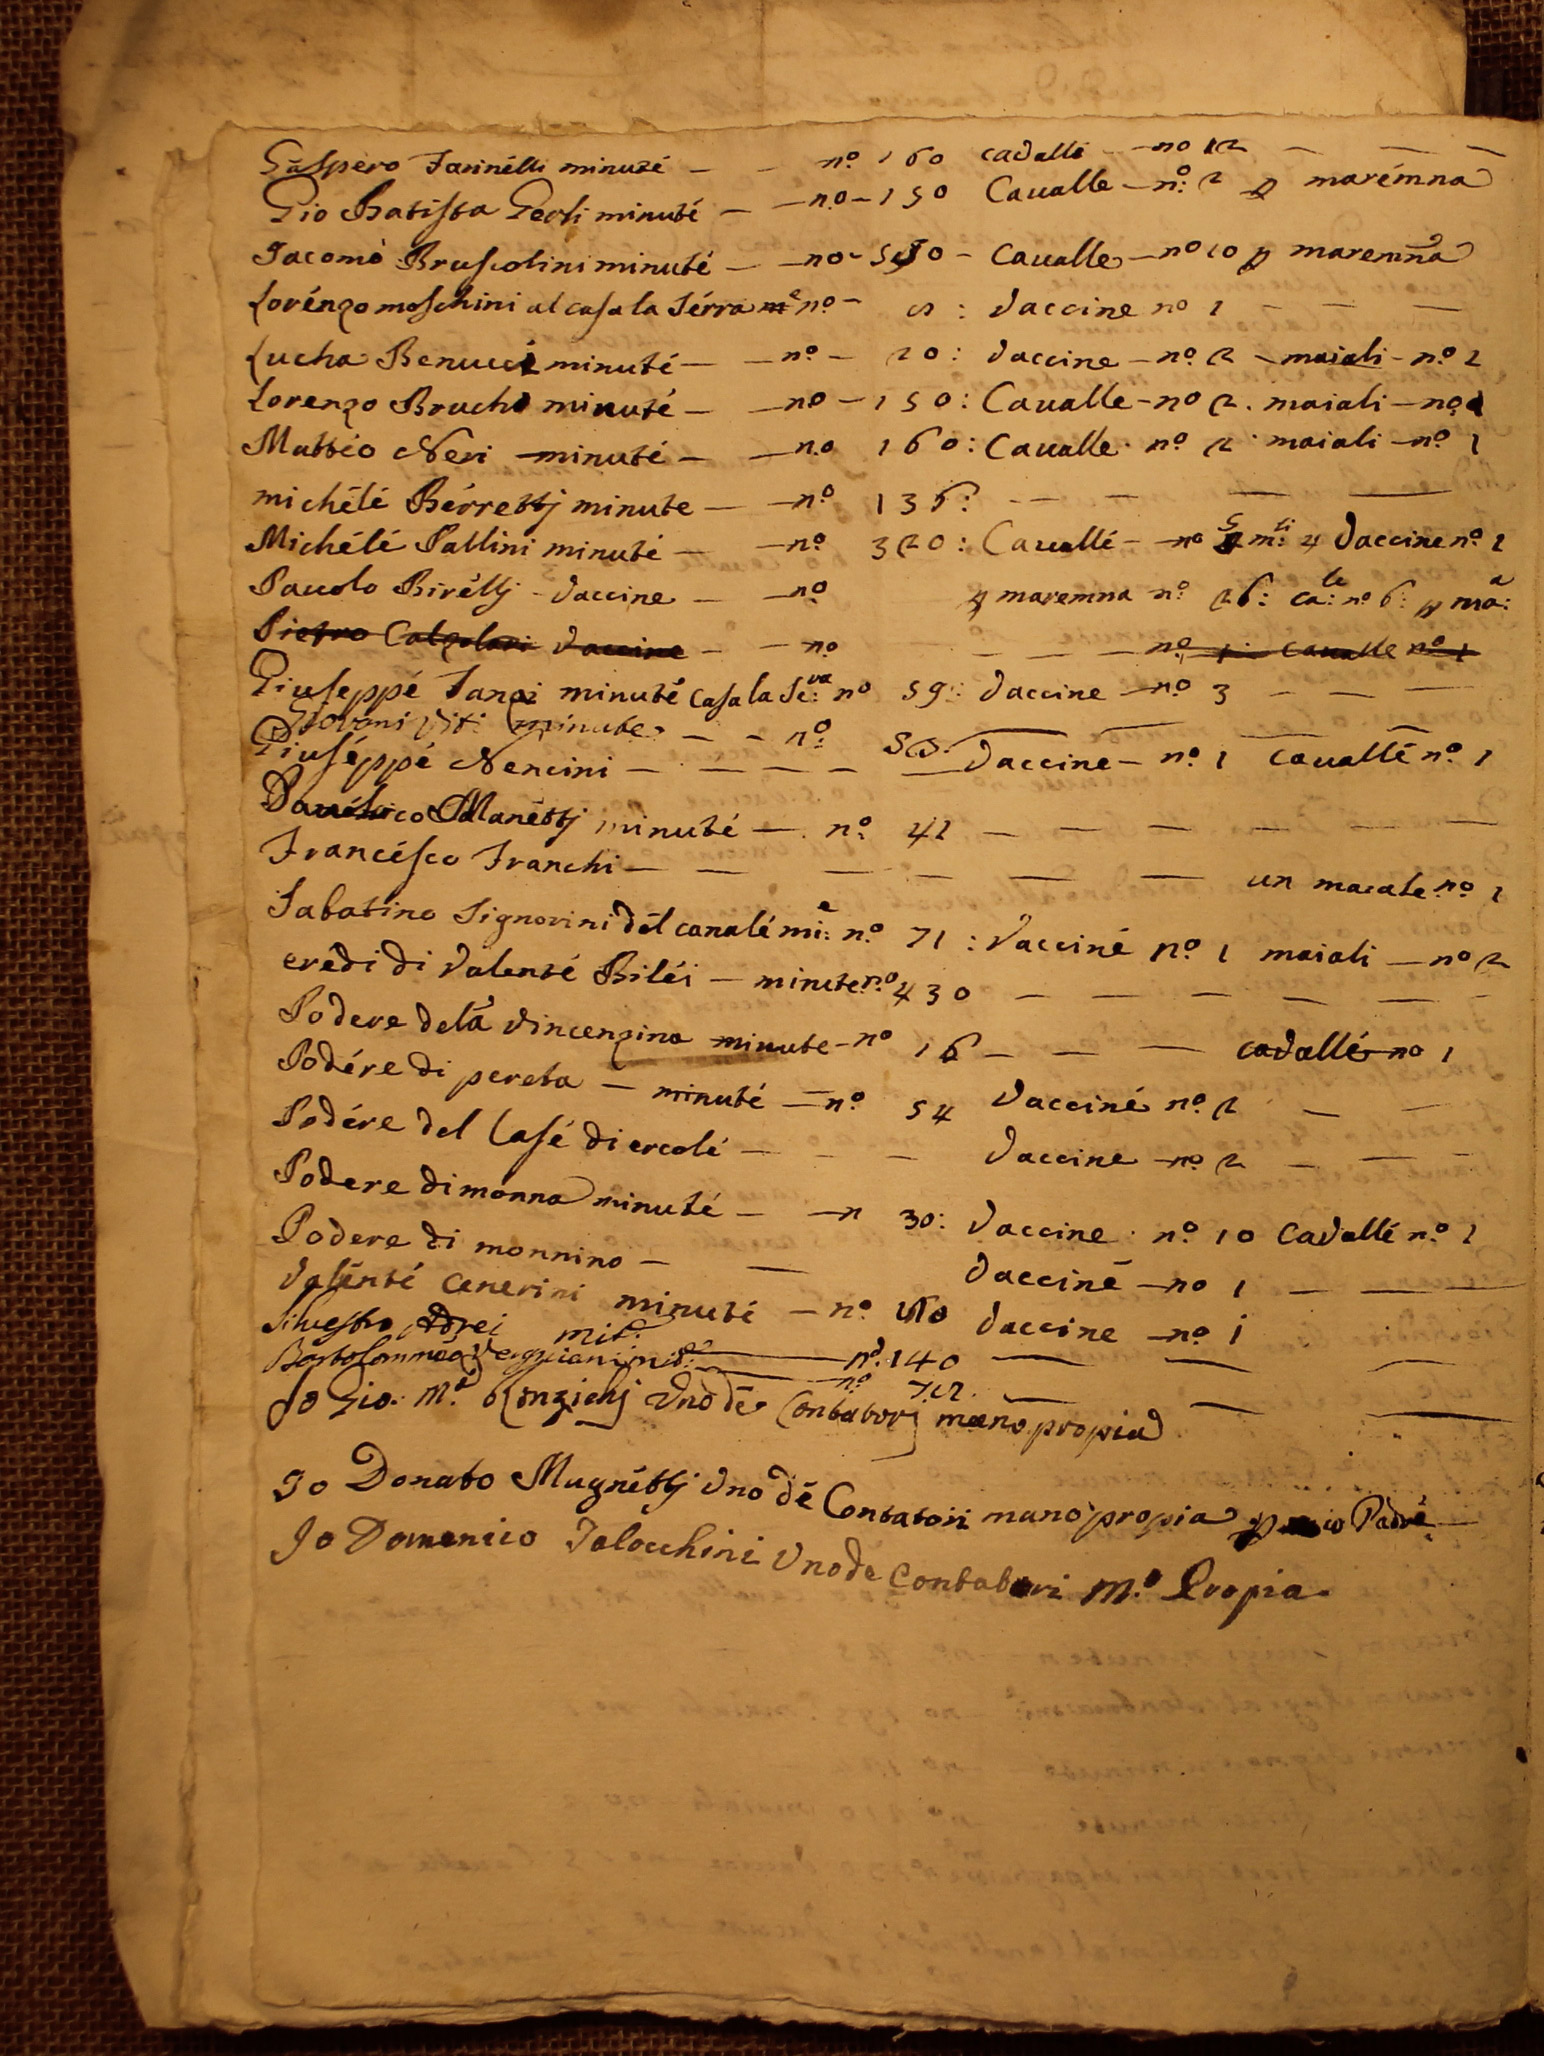 Gaspero Farinélli minuté — - nº 160 cavalle — no 12 — — —
Gio Batista Gerli minuté — — no — 150 Caualle — nº: 2 p maremna
Jacomò Bruscolini minuté — — no - Caualle — nº 10 p maremna
Lorénzo moschini al casa la Sérra nº - : Vaccine no 1 — — —
Lucha Benucci minuté — — nº — 20 : Vaccine — nº 2 — maiali — nº 2
Lorenzo Bruchi minuté — — nº — 150 : Caualle — nº 2 . maiali — nº
Mattio Neri minuté — — no 160 : Caualle . nº 2 . maiali — nº 1
michélé Bérrettj minute — — nº 136 : — — — —
Michélé Pallini minuté — — nº 320 : Cauallé — no 4 Vaccine nº 1
Pauolo Biréllj - Vaccine — — nº p maremna nº 26 : ca:le nº 6 : p ma:a
Pietro Calzolari Vaccine - — nº — — — nº 1 Caualle nº 1
Giuseppé Sanzi minuté casa la Se:va nº 59 : Vaccine — nº 3 — — —
Giovani Viti minute . — — nº:
Giuséppé Nencini — — — — — Vaccine — nº 1 cauallé nº 1
Manéttj minuté — . nº 41 — — — — — —
Francésco Franchi — — — — — — — un maiale nº 1
Sabatino Signorini dél canalé mi:e nº 71 : Vacciné nº 1 maiali — no 2
eredi di Valenté Biléi — minute nº 430 — — — — — —
Podere dela Vincenzina minute — nº 16 — — — cavallé no 1
Podére di pereta — minuté — nº 54 Vacciné nº 2 — —
Podére del Casé di ercolé — — — Vacciné — no 2 — — —
Podere di monna minuté — — n 30 : Vaccine . nº 10 Cavallé nº 1
Podere di monnino — — Vacciné — no 1 — — —
Valénté Cenerini minuté — nº Vaccine — no 1
Silvestro Adrei mit:e nº. 140 — — —
Bartolommeo nº 72 . — — —
Io Gio: M.a Uno dé Contatorj mano propia
Io Donato Mugnéttj Uno dé Contatori mano propia p mio Padré —
Io Domenico Talocchini Uno de Contatori M.º Propia .